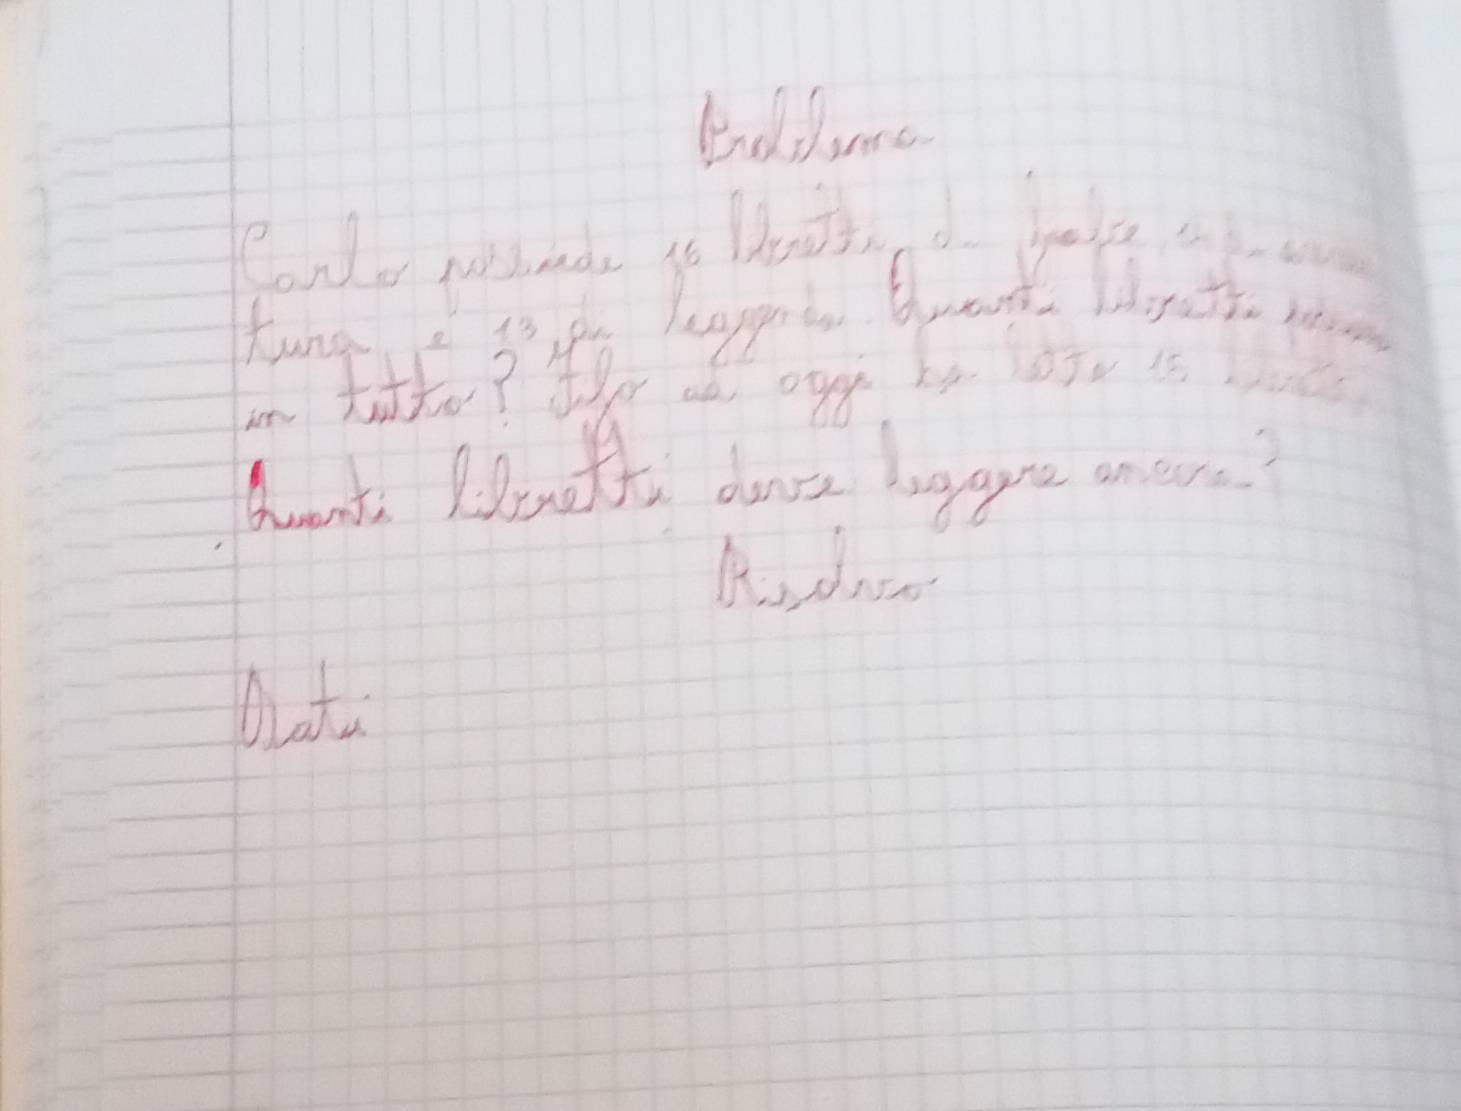 Problema
Carlo possiede 16 libretti di
tura e 13 di leggende. Quanti libretti
in tutto? Fino ad oggi ha letto 15
Quanti libretti deve leggere ancora?
Risolvo
Dati